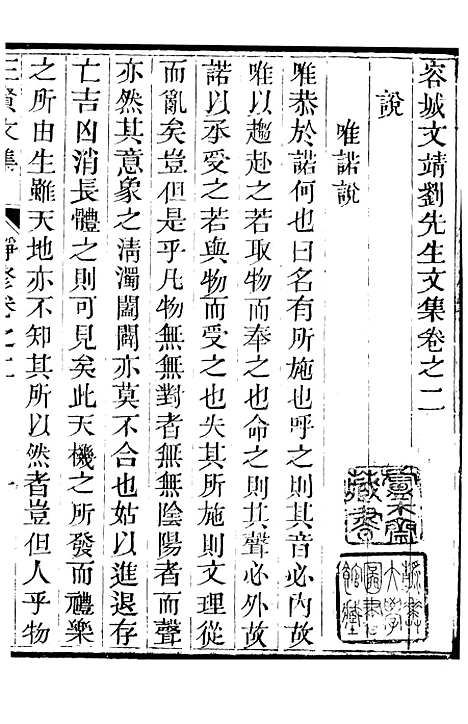 容城文靖劉先生文集卷之二
說
唯諾說
唯恭於諾何也曰名有所施也呼之則其音必內故
唯以趨赴之若取物而奉之也命之則其聲必外故
諾以承受之若與物而受之也失其所施則文理從
而亂矣豈但是乎凡物無無對者無無陰陽者而聲
亦然其意象之清濁闔闢亦莫不合也姑以進退存
亡吉凶消長體之則可見矣此天機之所發而禮樂
之所由生雖天地亦不知其所以然者豈但人乎物
三賢文集
靜修卷之二
一
藏書
大學
圖書
館藏